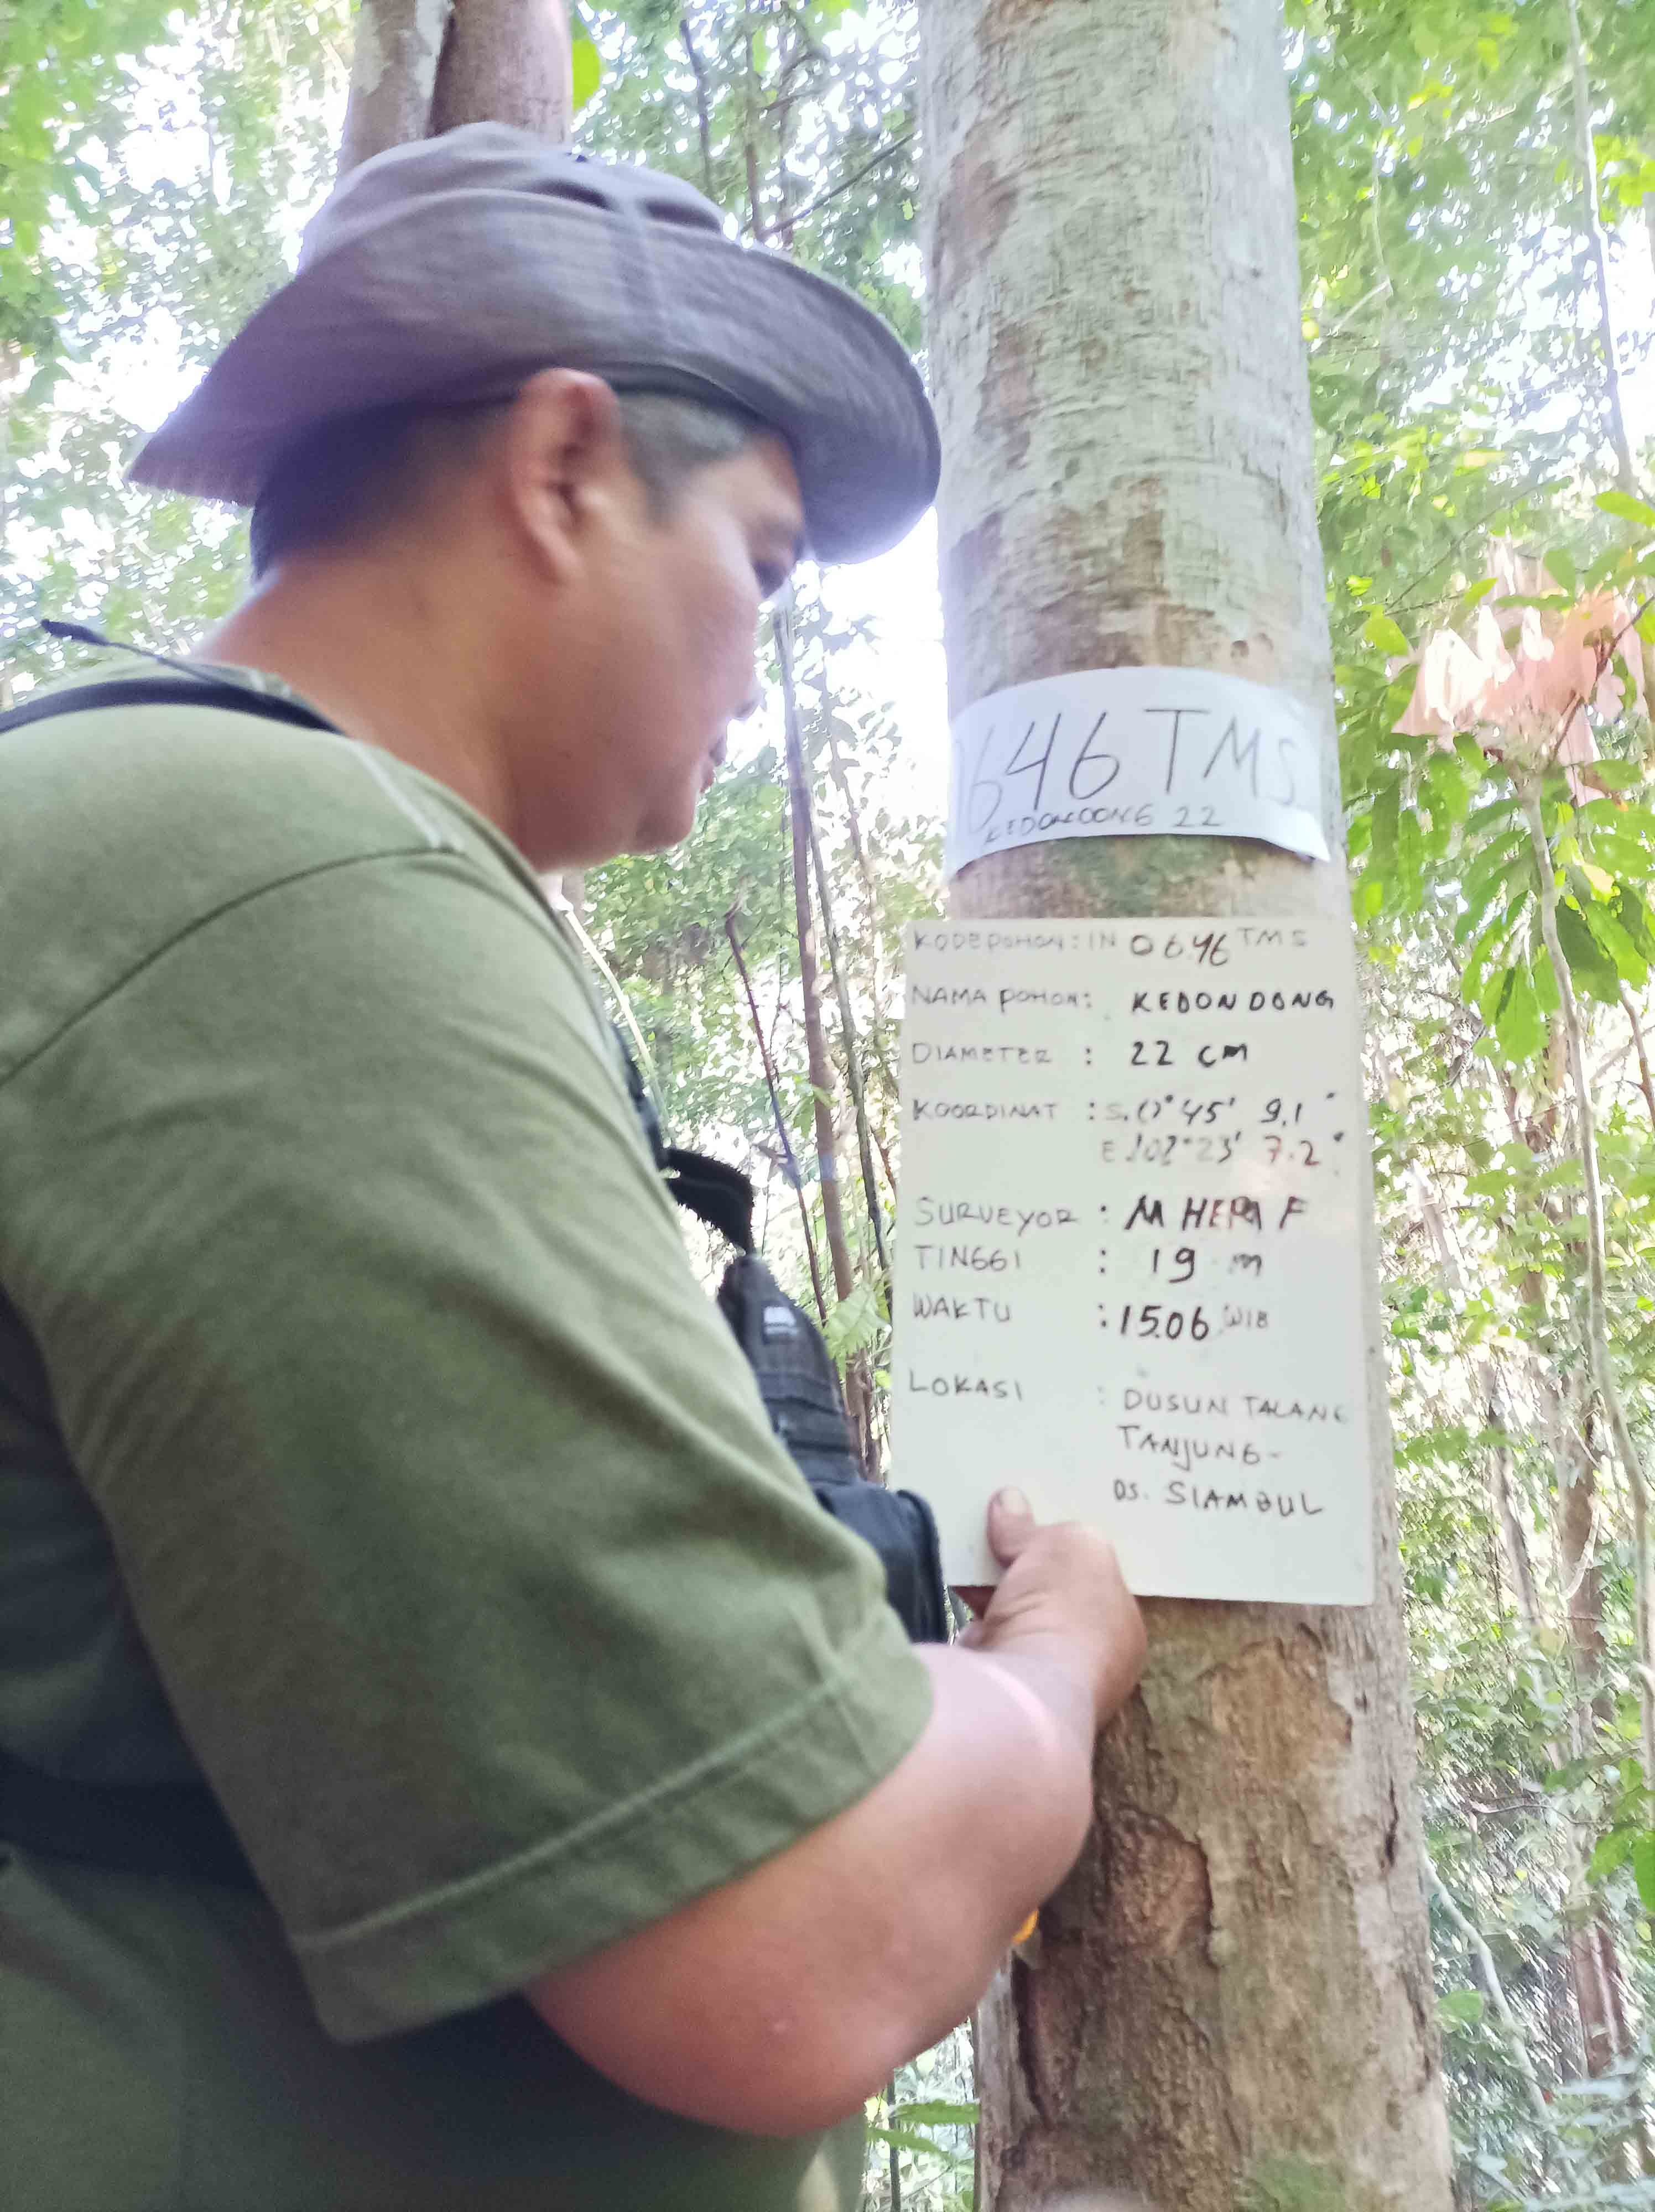 0646 TMS
KEDONDONG 22
KODE POHON : IN 0646 TMS
NAMA POHON : KEDONDONG
DIAMETER : 22 CM
KOORDINAT : S. 0° 45' 9.1"
E 102° 23' 7.2"
SURVEYOR : M HERI F
TINGGI : 19 m
WAKTU : 15.06 WIB
LOKASI : DUSUN TALANG
TANJUNG -
DS. SIAMBUL